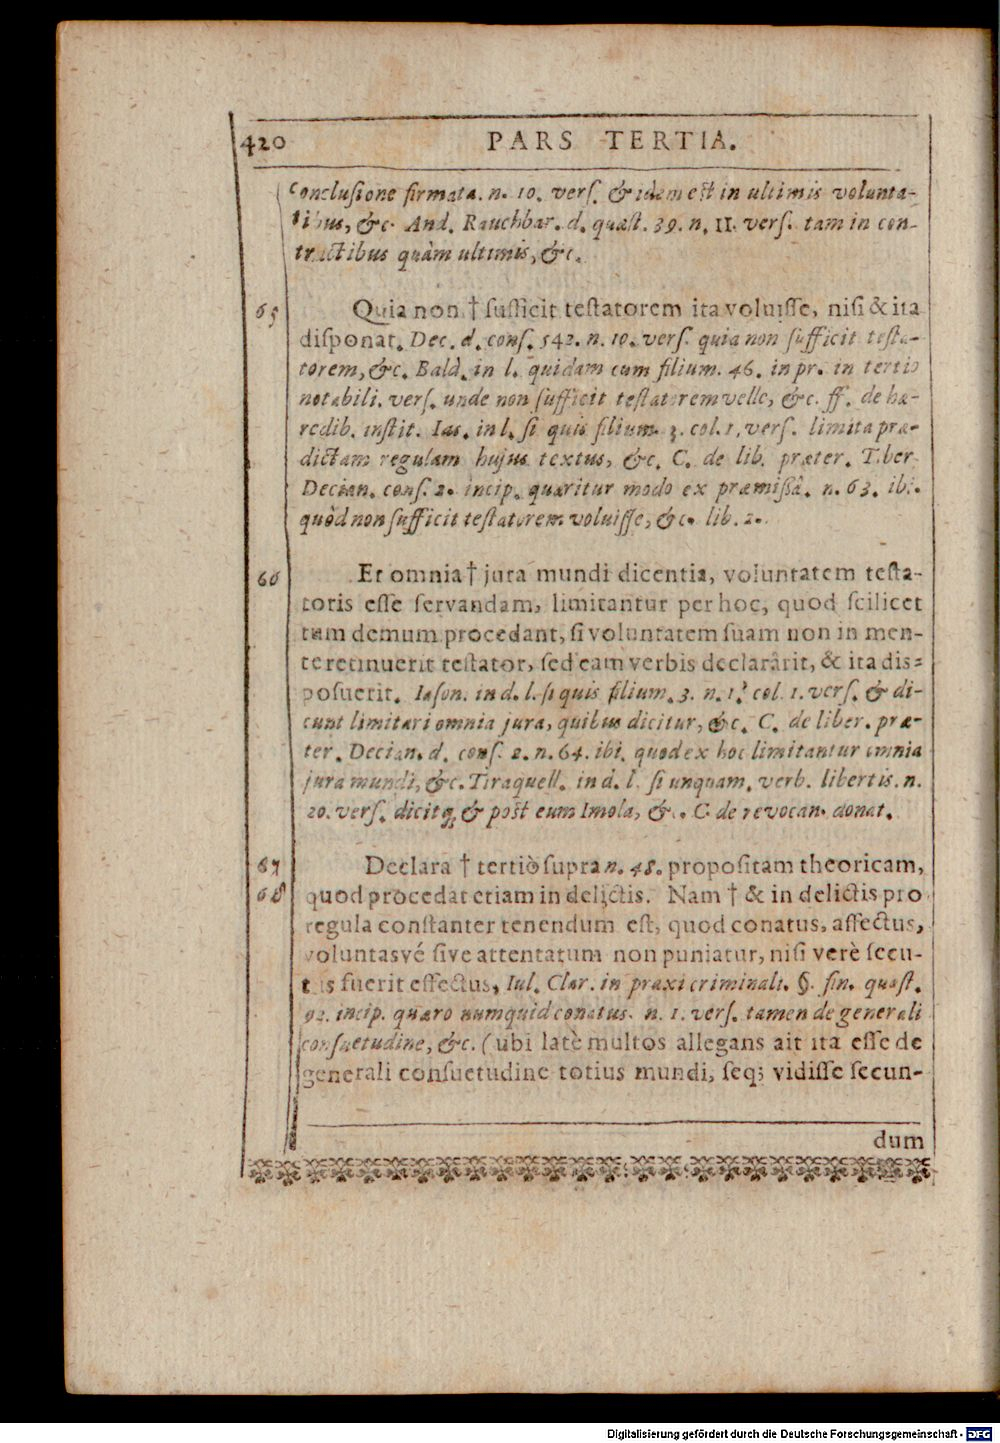 420 PARS TERTIA.
conclusione firmata. n. 10. vers. & idem est in ultimis volunta-
tibus, &c. And. Rauchbar. d. quæst. 39. n. 11. vers. tam in con-
tractibus quàm ultimis, &c.
65 Quia non † sufficit testatorem ita voluisse, nisi & ita
disponat. Dec. d. cons. 542. n. 10. vers. quia non sufficit testa-
torem, &c. Bald. in l. quidam cum filium. 46. in pr. in tertio
notabili. vers. unde non sufficit testatorem velle, &c. ff. de hæ-
redib. instit. Ias. in l. si quis filium. 3. col. 1. vers. limita præ-
dictam regulam hujus textus, &c. C. de lib. præter. Tiber
Decian. cons. 2. incip. quæritur modo ex præmissâ. n. 63. ibi.
quòd non sufficit testatorem voluisse, &c. lib. 2.
66 Et omnia † jura mundi dicentia, voluntatem testa-
toris esse servandam, limitantur per hoc, quod scilicet
tum demum procedant, si voluntatem suam non in men-
te retinuerit testator, sed eam verbis declarârit, & ita dis-
posuerit. Iason. in d. l. si quis filium. 3. n. 1. col. 1. vers. & di-
cunt limitari omnia jura, quibus dicitur, &c. C. de liber. præ-
ter. Decian. d. cons. 2. n. 64. ibi. quod ex hoc limitantur omnia
jura mundi, &c. Tiraquell. in d. l. si unquam. verb. libertis. n.
20. vers. dicitq; & post eum Imola, &c. C. de revocan. donat.
67 Declara † tertiò supra n. 48. propositam theoricam,
68 quod procedat etiam in delictis. Nam † & in delictis pro
regula constanter tenendum est, quod conatus, affectus,
voluntasvé sive attentatum non puniatur, nisi verè secu-
tus fuerit effectus, Iul. Clar. in praxi criminali. §. fin. quæst.
92. incip. quæro numquid conatus. n. 1. vers. tamen de generali
consuetudine, &c. (ubi latè multos allegans ait ita esse de
generali consuetudine totius mundi, seq; vidisse secun-
dum
Digitalisierung gefördert durch die Deutsche Forschungsgemeinschaft - DFG